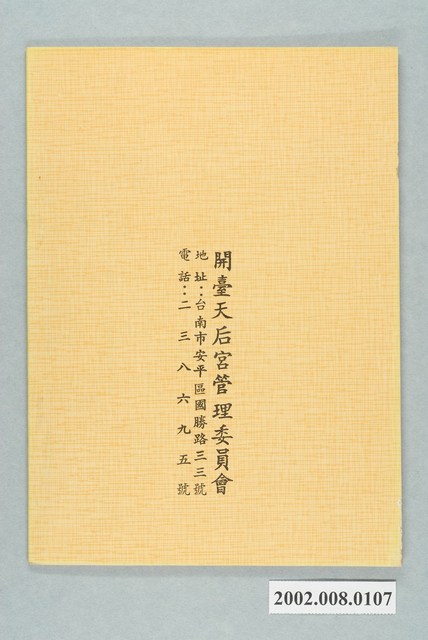 開臺天后宮管理委員會
地址：台南市安平區國勝路三三號
電話：二三八六九五號
2002.008.0107